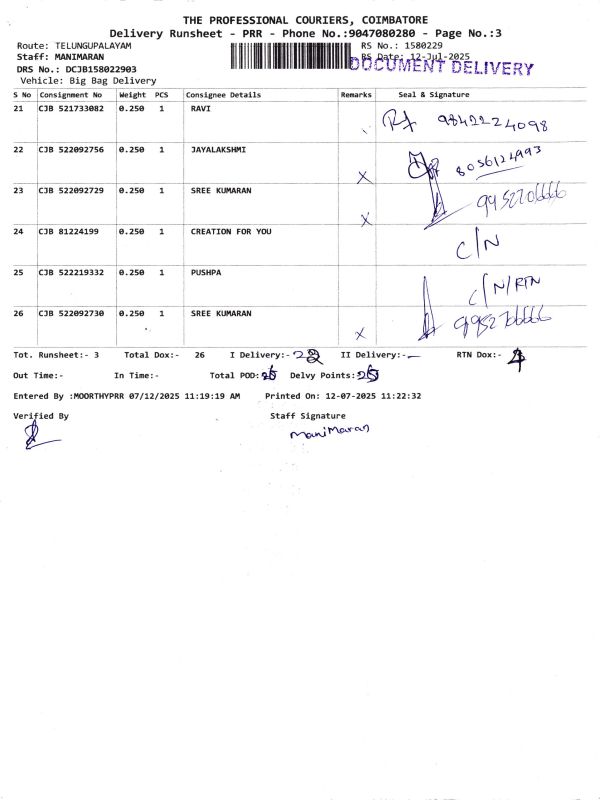 THE PROFESSIONAL COURIERS, COIMBATORE
Delivery Runsheet - PRR - Phone No.:9047080280 - Page No.:3
Route: TELUNGUPALAYAM RS No.: 1580229
Staff: MANIMARAN RS Date: 12-Jul-2025
DOCUMENT DELIVERY
DRS No.: DCJB158022903
Vehicle: Big Bag Delivery
S No Consignment No Weight PCS Consignee Details Remarks Seal & Signature
21 CJB 521733082 0.250 1 RAVI 9842224098
22 CJB 522092756 0.250 1 JAYALAKSHMI X 8056124993
23 CJB 522092729 0.250 1 SREE KUMARAN X 9952706666
24 CJB 81224199 0.250 1 CREATION FOR YOU C/N
25 CJB 522219332 0.250 1 PUSHPA C/N/RTN
26 CJB 522092730 0.250 1 SREE KUMARAN X 9952706666
Tot. Runsheet:- 3 Total Dox:- 26 I Delivery:- II Delivery:- — RTN Dox:-
Out Time:- In Time:- Total POD: Delvy Points:
Entered By :MOORTHYPRR 07/12/2025 11:19:19 AM Printed On: 12-07-2025 11:22:32
Verified By Staff Signature
ManiMaran